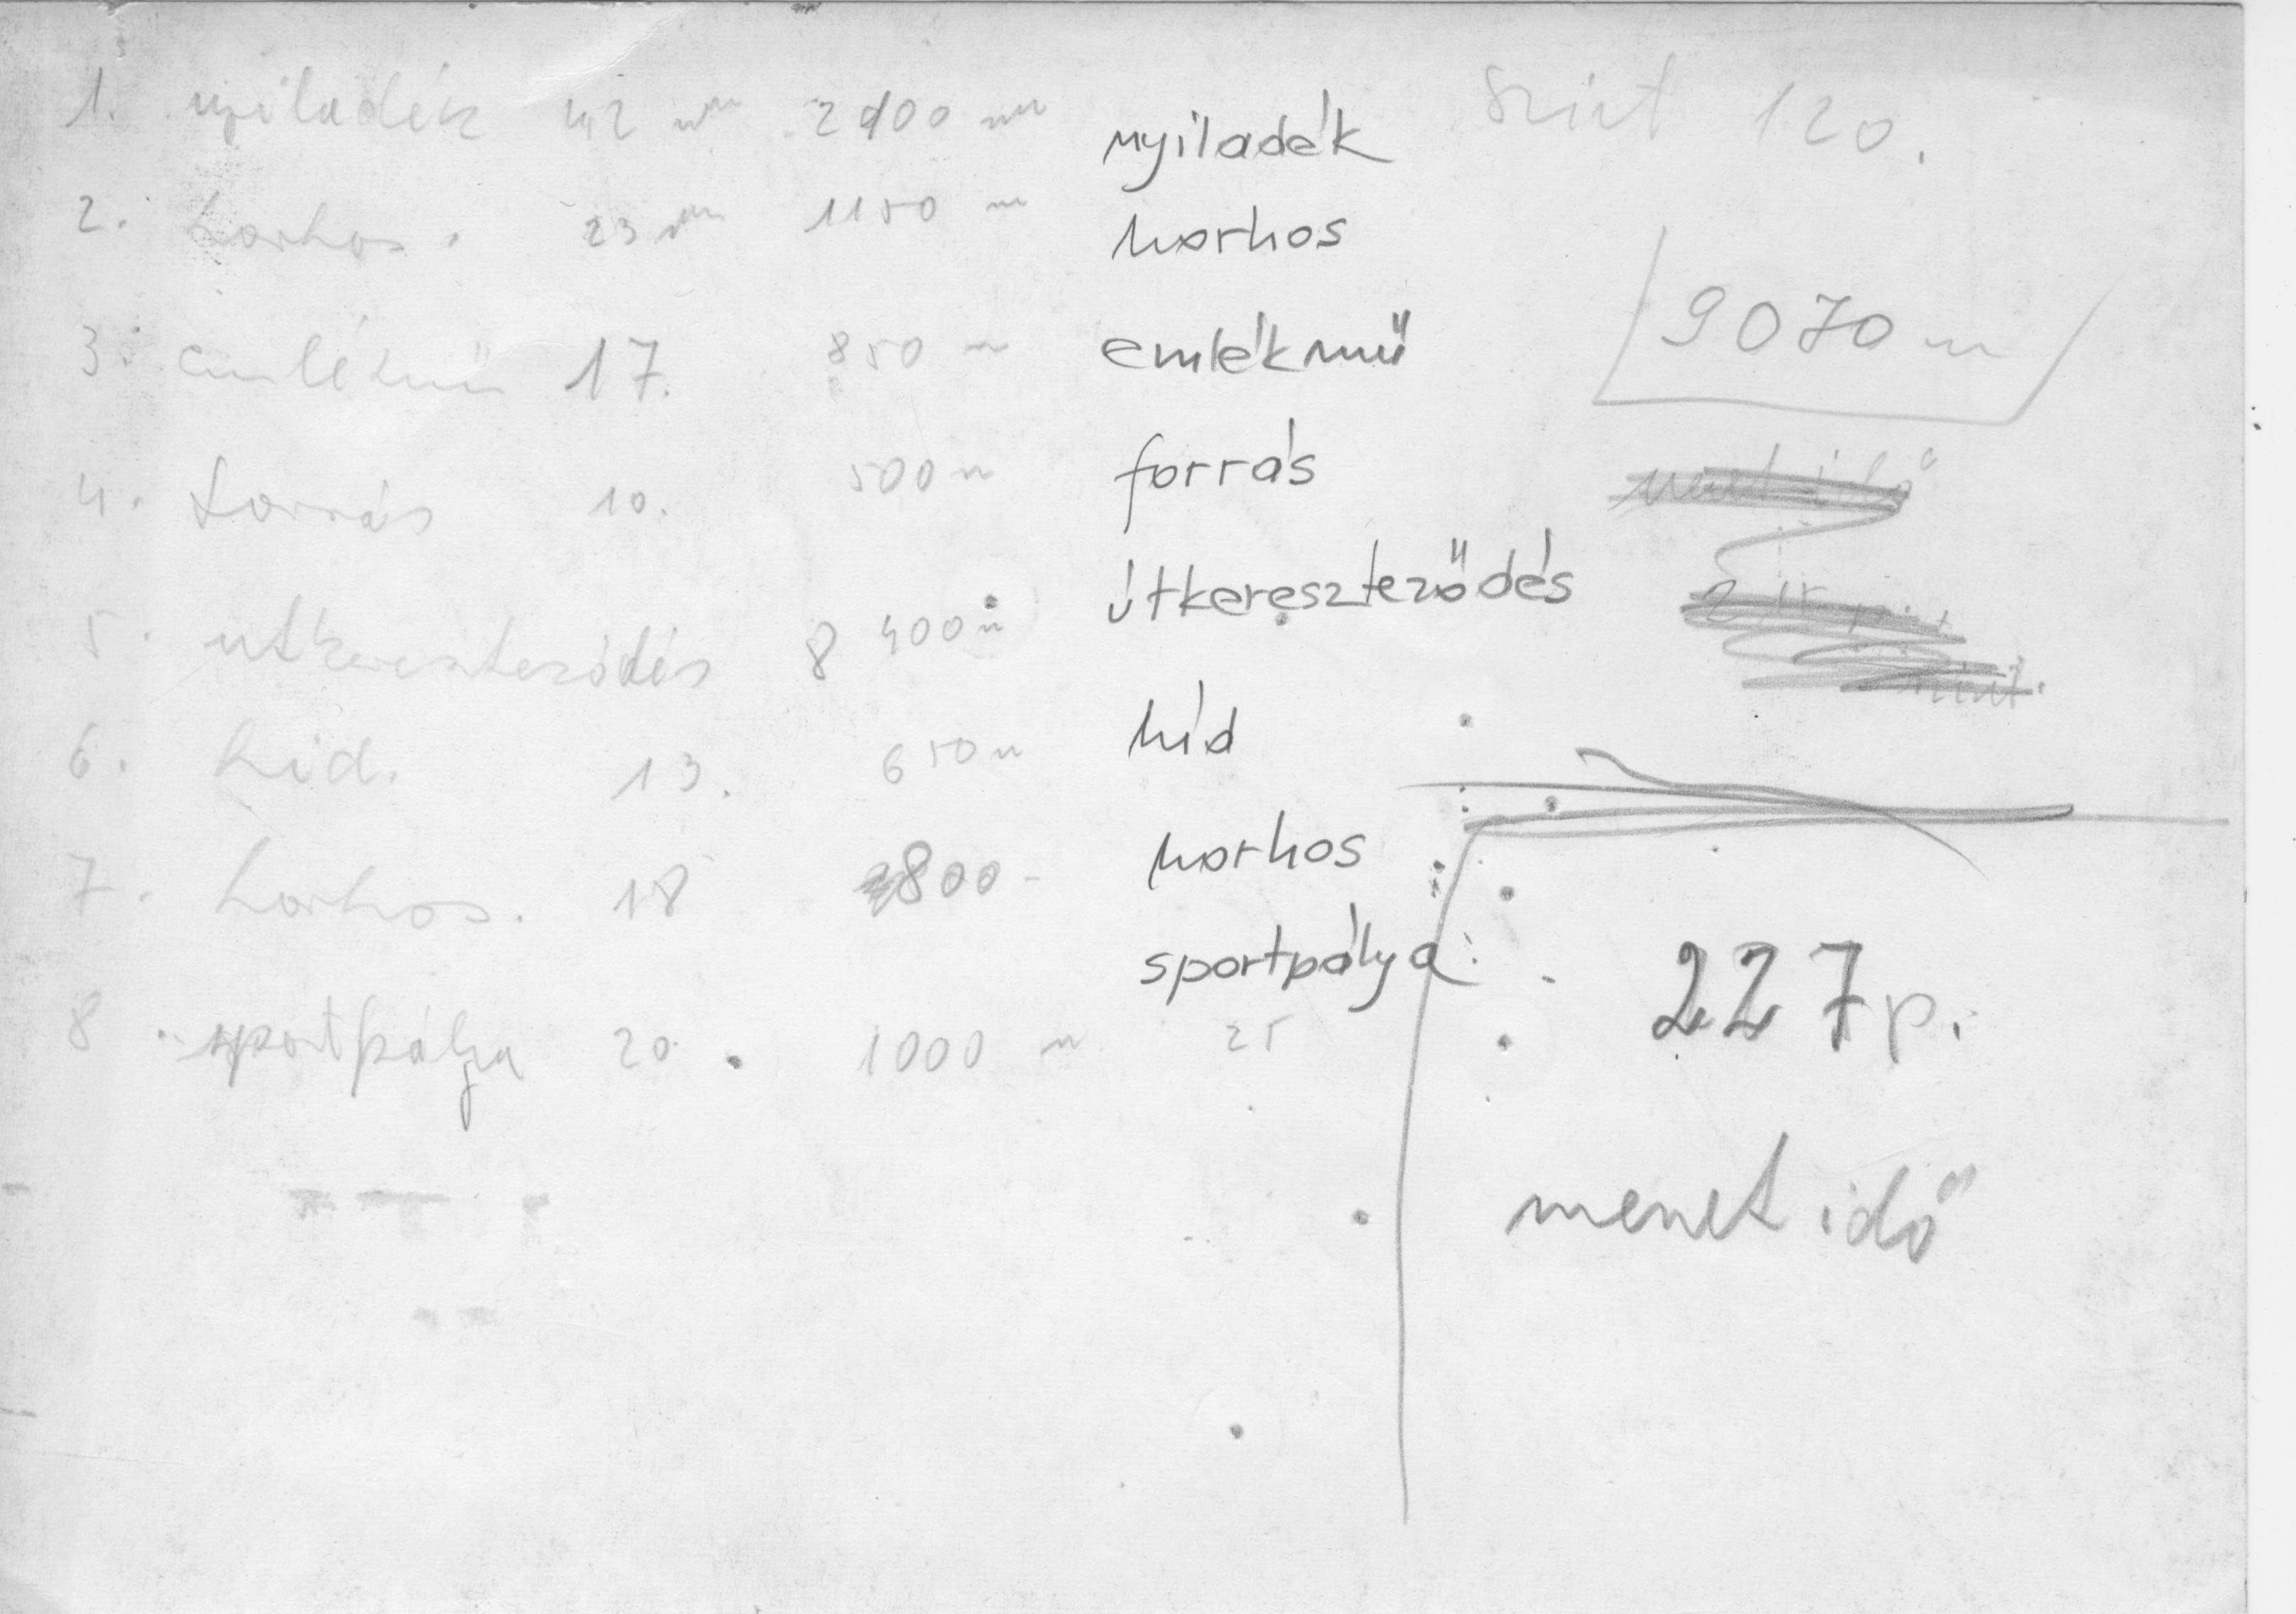 1. nyiladék 42 mm 2100 m
2. horhos. 23 mm 1150 m
3. emlékmű 17. 850 m
4. forrás 10. 500 m
5. utkereszteződés 8 400 m
6. híd. 13. 650 m
7. horhos. 18 800
8. sportpálya 20. 1000 m 25
nyiladék
horhos
emlékmű
forrás
útkereszteződés
híd
horhos
sportpálya
Szint 120.
9070 m
menet idő
227 p.
menet idő